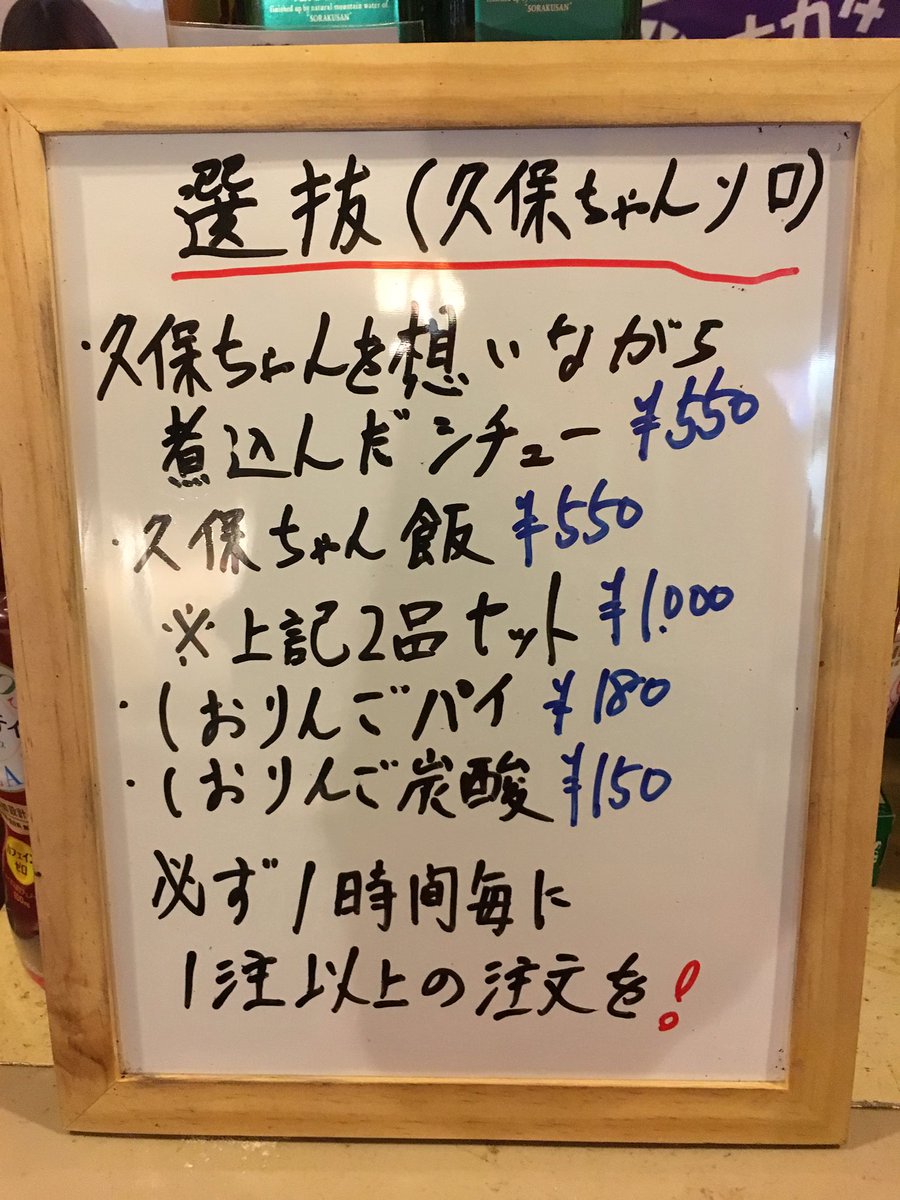 finished up by natural mountain water of
"SORAKUSAN"
選抜(久保ちゃんソロ)
・久保ちゃんを想いながら
煮込んだシチュー ¥550
・久保ちゃん飯 ¥550
※上記2品セット ¥1,000
・しおりんごパイ ¥180
・しおりんご炭酸 ¥150
必ず1時間毎に
1注以上の注文を!
カフェイン
ゼロ